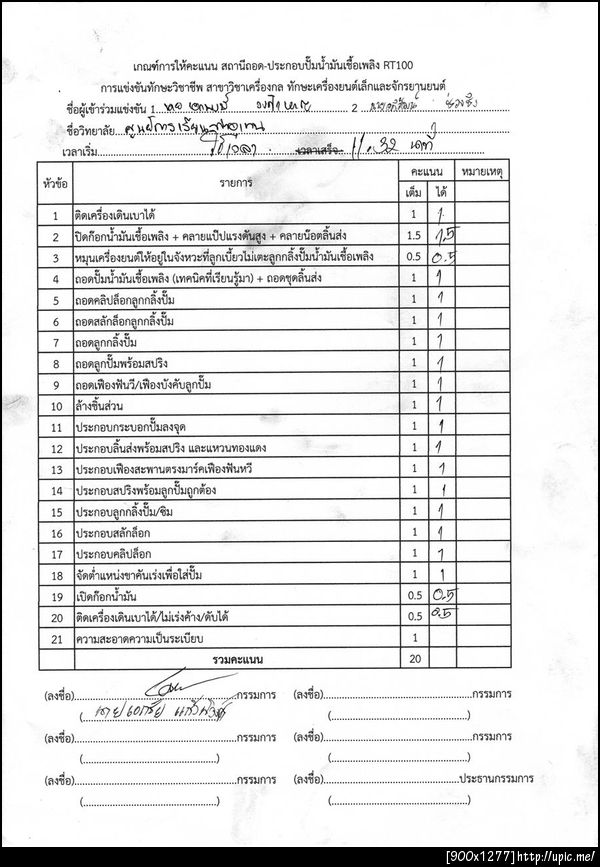 เกณฑ์การให้คะแนน สถานีถอด-ประกอบปั๊มน้ำมันเชื้อเพลิง RT100
การแข่งขันทักษะวิชาชีพ สาขาวิชาเครื่องกล ทักษะเครื่องยนต์เล็กและจักรยานยนต์
ชื่อผู้เข้าร่วมแข่งขัน 1. 2
ชื่อวิทยาลัย
เวลาเริ่ม ใช้เวลา เวลาเสร็จ 11.32 นาที
หัวข้อ รายการ คะแนน หมายเหตุ
เต็ม ได้
1 ติดเครื่องเดินเบาได้ 1 1
2 ปิดก๊อกน้ำมันเชื้อเพลิง + คลายแป๊ปแรงดันสูง + คลายน๊อตลิ้นส่ง 1.5 1.5
3 หมุนเครื่องยนต์ให้อยู่ในจังหวะที่ลูกเบี้ยวไม่เตะลูกกลิ้งปั๊มน้ำมันเชื้อเพลิง 0.5 0.5
4 ถอดปั๊มน้ำมันเชื้อเพลิง (เทคนิคที่เรียนรู้มา) + ถอดชุดลิ้นส่ง 1 1
5 ถอดคลิปล็อกลูกกลิ้งปั๊ม 1 1
6 ถอดสลักล็อกลูกกลิ้งปั๊ม 1 1
7 ถอดลูกกลิ้งปั๊ม 1 1
8 ถอดลูกปั๊มพร้อมสปริง 1 1
9 ถอดเฟืองฟันวี/เฟืองบังคับลูกปั๊ม 1 1
10 ล้างชิ้นส่วน 1 1
11 ประกอบกระบอกปั๊มลงจุด 1 1
12 ประกอบลิ้นส่งพร้อมสปริง และแหวนทองแดง 1 1
13 ประกอบเฟืองสะพานตรงมาร์คเฟืองฟันหวี 1 1
14 ประกอบสปริงพร้อมลูกปั๊มถูกต้อง 1 1
15 ประกอบลูกกลิ้งปั๊ม/ชิม 1 1
16 ประกอบสลักล็อก 1 1
17 ประกอบคลิปล็อก 1 1
18 จัดตำแหน่งขาคันเร่งเพื่อใส่ปั๊ม 1 1
19 เปิดก๊อกน้ำมัน 0.5 0.5
20 ติดเครื่องเดินเบาได้/ไม่เร่งค้าง/ดับได้ 0.5 0.5
21 ความสะอาดความเป็นระเบียบ 1
รวมคะแนน 20
(ลงชื่อ) กรรมการ (ลงชื่อ) กรรมการ
(ลงชื่อ) กรรมการ (ลงชื่อ) กรรมการ
(ลงชื่อ) กรรมการ (ลงชื่อ) ประธานกรรมการ
[900x1277]http://upic.me/